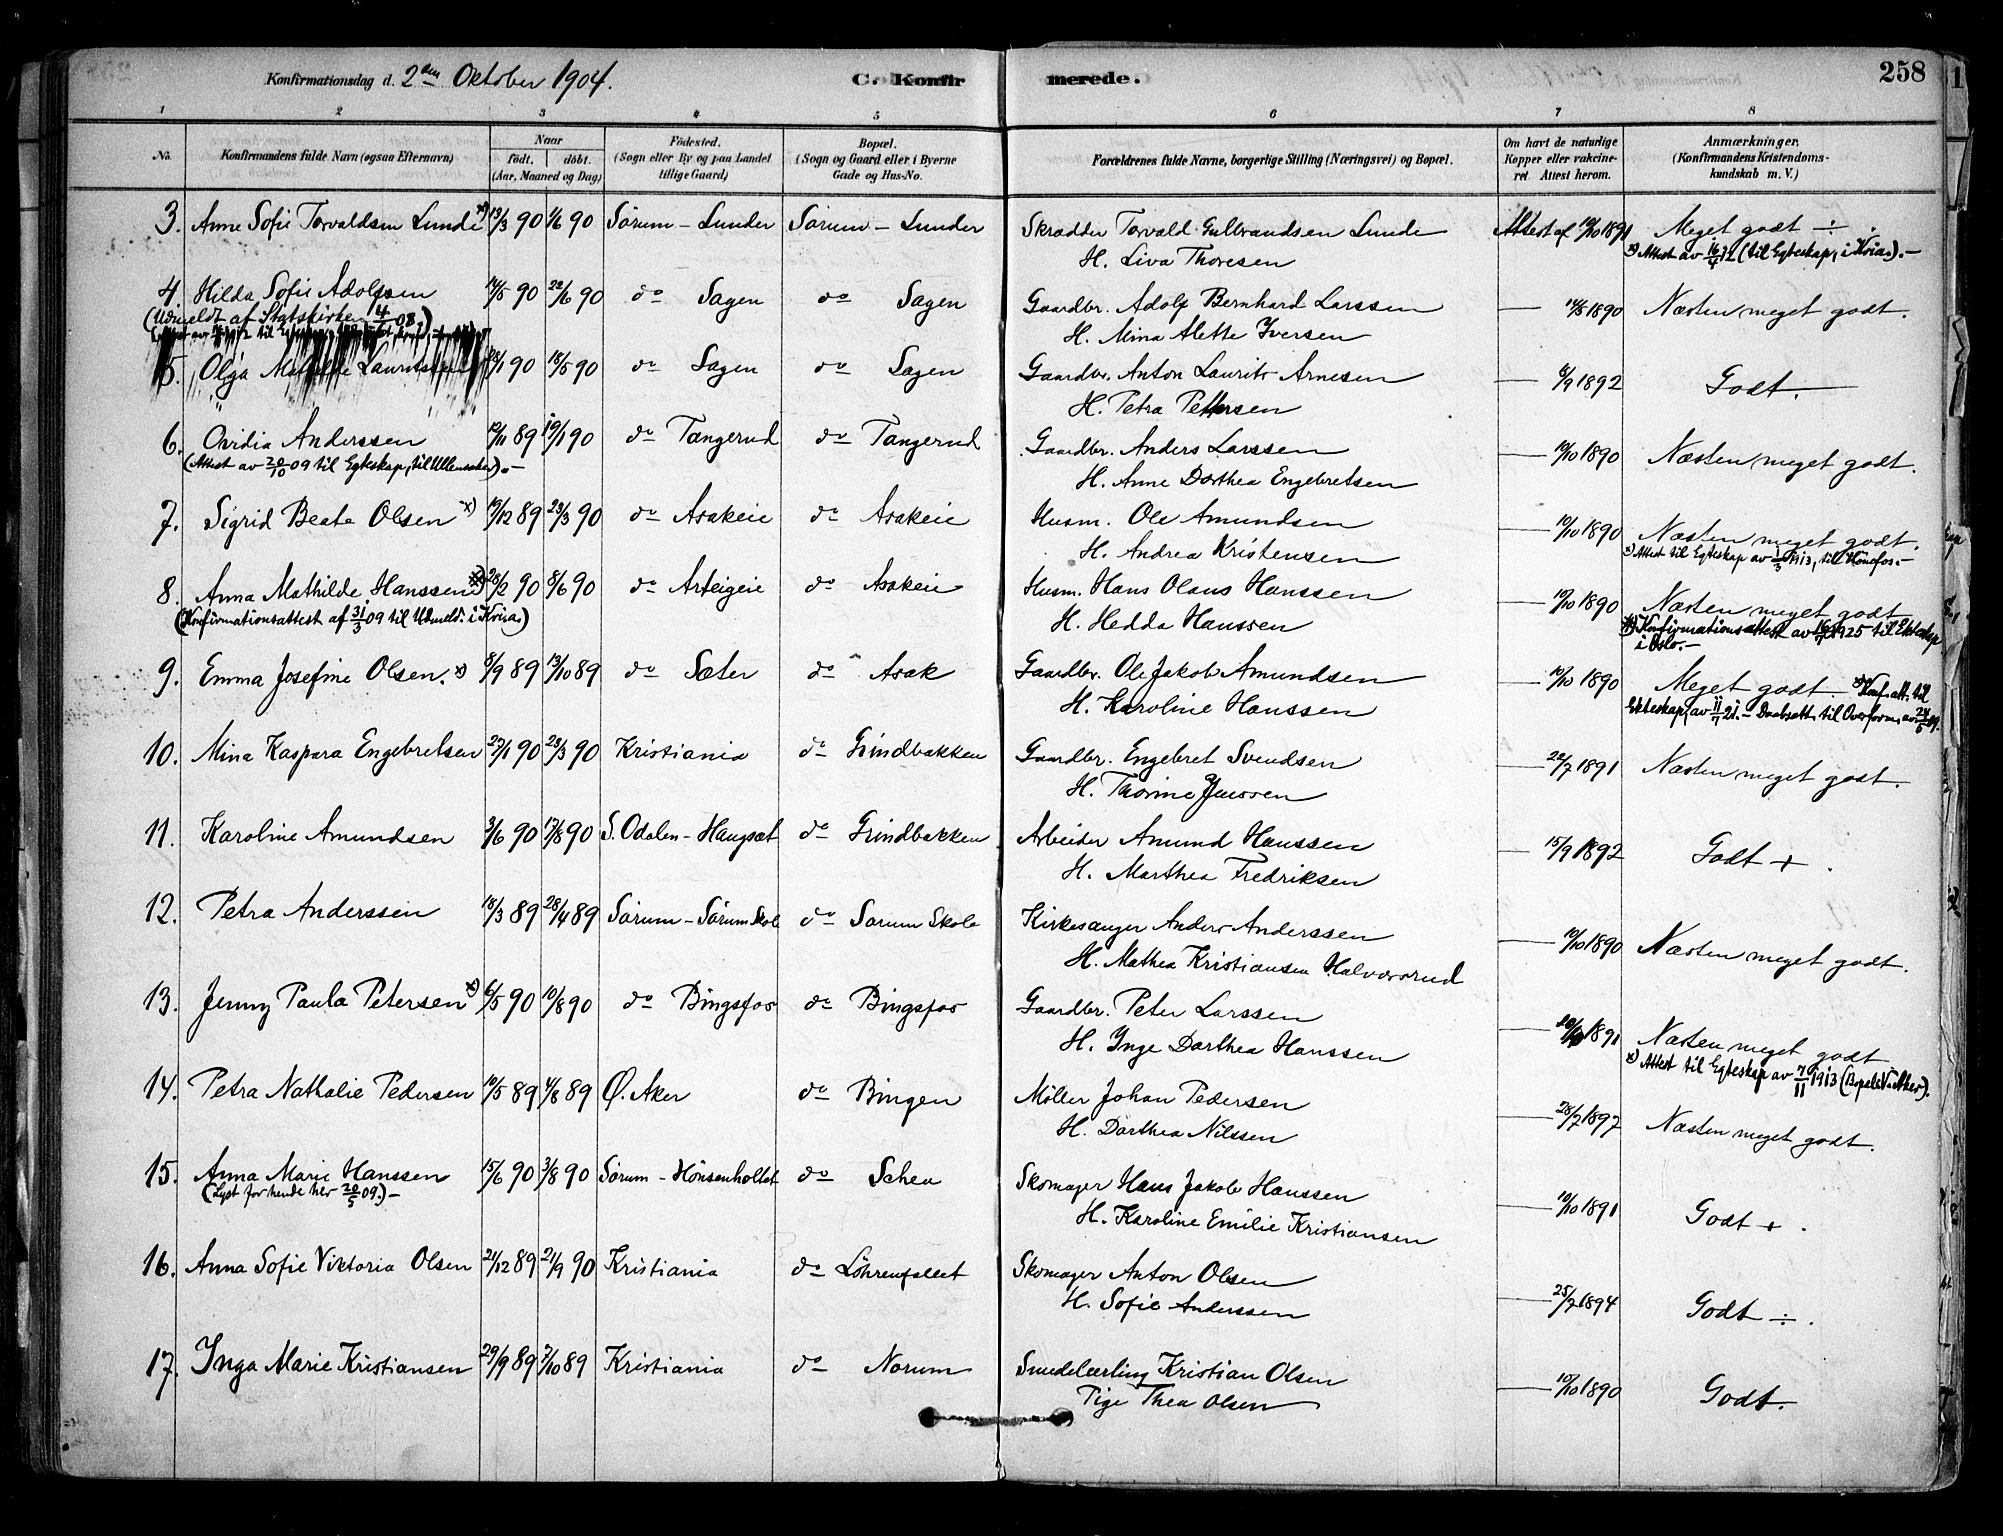 Konfirmationsdag d. 2den Oktober 1904. C. Konfirmerede. 258
1 2 3 4 5 6 7 8
No. Konfirmandens fulde Navn (ogsaa Efternavn) Naar født. døbt. (Aar, Maaned og Dag) Fødested. (Sogn eller By og paa Landet tillige Gaard) Bopæl. (Sogn og Gaard eller i Byerne Gade og Hus-No. Forældrenes fulde Navne, borgerlige Stilling (Næringsvei) og Bopæl. Om havt de naturlige Kopper eller vakcineret. Attest herom. Anmærkninger. (Konfirmandens Kristendomskundskab m. V.)
3. Anne Sofie Torvaldsen Lunde x) 13/3 90 1/6 90 Sørum - Lunder Sørum - Lunder Skrædder Torvald Gulbrandsen Lunde Attest af 10/10 1891 Meget godt ÷.
H. Liva Thoresen x) Attest av 16/4 12 (til Egteskap, i Kria). -
4. Hilda Sofie Adolfsen 14/5 90 22/6 90 do Sagen do Sagen Gaardbr. Adolf Bernhard Larssen — 14/8 1890 Næsten meget godt.
(Udmeldt af Statskirken 4/ 08) H. Mina Alette Iversen
5. Olga Mathilde Lauritsen 28/1 90 18/5 90 do Sagen do Sagen Gaardbr. Anton Laurits Arnesen — 6/9 1892 Godt.
H. Petra Pettersen
6. Ovidia Anderssen 12/11 89 19/1 90 do Tangerud do Tangerud Gaardbr. Anders Larssen — 10/10 1890 Næsten meget godt.
(Attest av 20/10 09 til Egteskap, til Ullensaker). - H. Anne Dorthea Engebretsen
7. Sigrid Beate Olsen x) 19/12 89 23/3 90 do Asakeie do Asakeie Husm. Ole Amundsen — 10/10 1890 Næsten meget godt.
H. Andrea Kristensen x) Attest til Egteskap av 1/3 1913, til Hønefos. -
8. Anna Mathilde Hanssen 28/2 90 8/6 90 do Arteigeie do Asakeie Husm. Hans Olaus Hanssen — 10/10 1890 Næsten meget godt
(Konfirmationsattest af 31/3 09 til Udmeld. i Kria.) H. Hedda Hanssen Konfirmationsattest av 16/ 1925 til Ekteskap i Oslo. -
9. Emma Josefine Olsen. x) 8/9 89 13/10 89 do Sæter do Asak Gaardbr. Ole Jakob Amundsen — 10/10 1890 Meget godt. x) Konf. att. til
H. Karoline Hanssen Ekteskap, av 11/ 21. - Daabsatt. til Overform. av 24/5
10. Mina Kaspara Engebretsen 27/1 90 23/3 90 Kristiania do Grindbakken Gaardbr. Engebret Svendsen — 22/7 1891 Næsten meget godt.
H. Thorine Jenssen
11. Karoline Amundsen 3/6 90 17/8 90 S. Odalen - Haugsæt do Grindbakken Arbeider Amund Hanssen — 15/9 1892 Godt + .
H. Marthea Fredriksen
12. Petra Anderssen 18/3 89 28/4 89 Sørum - Sørum Skole do Sørum Skole Kirkesanger Anders Anderssen — 10/10 1890 Næsten meget godt.
H. Mathea Kristiansen Halvorsrud
13. Jenny Paula Petersen x) 6/5 90 10/8 90 do Bingsfos do Bingsfos Gaardbr. Peter Larssen — 1891 Næsten meget godt
H. Inge Dorthea Hanssen x) Attest til Egteskap av 7/11 1913 (Bopæl V. Aker).
14. Petra Nathalie Pedersen 10/5 89 4/8 89 Ø. Aker do Bingen Møller Johan Pedersen — 28/7 1897 Næsten meget godt.
H. Dorthea Nilssen
15. Anna Marie Hanssen 15/6 90 3/8 90 Sørum - Hønsenholtet do Schea Skomager Hans Jakob Hanssen — 10/10 1891 Godt + .
(Lyst for hende her 20/5 09.) - H. Karoline Emilie Kristiansen
16. Anna Sofie Viktoria Olsen 21/12 89 21/9 90 Kristiania do Løhrenfallet Skomager Anton Olsen — 25/7 1894 Godt ÷ .
H. Sofie Anderssen
17. Inga Marie Kristiansen 29/9 89 7/10 89 Kristiania do Norum Smedelærling Kristian Olsen — 10/10 1890 Godt.
Pige Thea Olsen